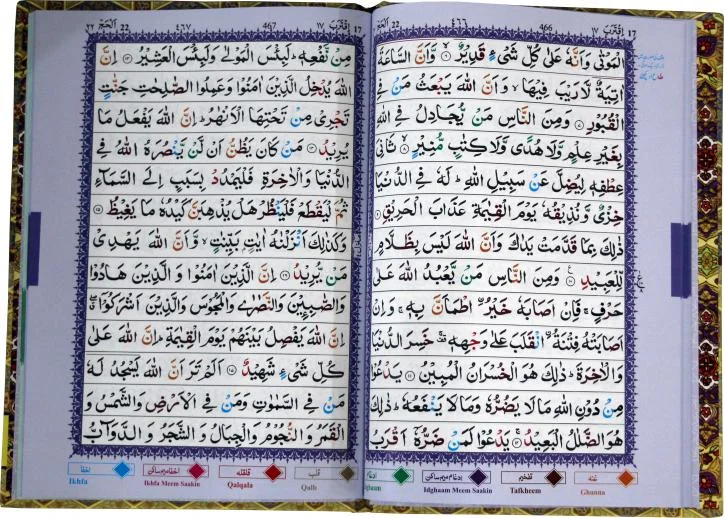 17 اِقْتَرَبَ ١٧ 466 ٤٦٦ 22 اَلْحَجّ
الْمَوْتٰى وَاَنَّهٗ عَلٰى كُلِّ شَىْءٍ قَدِيْرٌ ۙ‏﴿۶﴾ وَّاَنَّ السَّاعَةَ
اٰتِيَةٌ لَّا رَيْبَ فِيْهَا ۙ وَاَنَّ اللّٰهَ يَبْعَثُ مَنْ فِى
الْقُبُوْرِ ﴿۷﴾ وَمِنَ النَّاسِ مَنْ يُّجَادِلُ فِى اللّٰهِ
بِغَيْرِ عِلْمٍ وَّلَا هُدًى وَّلَا كِتٰبٍ مُّنِيْرٍ ۙ﴿۸﴾ ثَانِىَ
عِطْفِهٖ لِيُضِلَّ عَنْ سَبِيْلِ اللّٰهِ ؕ لَهٗ فِى الدُّنْيَا
خِزْىٌ وَّنُذِيْقُهٗ يَوْمَ الْقِيٰمَةِ عَذَابَ الْحَرِيْقِ ﴿۹﴾
ذٰلِكَ بِمَا قَدَّمَتْ يَدٰكَ وَاَنَّ اللّٰهَ لَيْسَ بِظَلَّامٍ
لِّلْعَبِيْدِ ﴿۱۰﴾ وَمِنَ النَّاسِ مَنْ يَّعْبُدُ اللّٰهَ عَلٰى
حَرْفٍ ۚ فَاِنْ اَصَابَهٗ خَيْرُ ۨاطْمَاَنَّ بِهٖ ۚ وَاِنْ
اَصَابَتْهُ فِتْنَةُ ۨانْقَلَبَ عَلٰى وَجْهِهٖ ۚ خَسِرَ الدُّنْيَا
وَالْاٰخِرَةَ ؕ ذٰلِكَ هُوَ الْخُسْرَانُ الْمُبِيْنُ ﴿۱۱﴾ يَدْعُوْا
مِنْ دُوْنِ اللّٰهِ مَا لَا يَضُرُّهٗ وَمَا لَا يَنْفَعُهٗ ؕ ذٰلِكَ
هُوَ الضَّلٰلُ الْبَعِيْدُ ۚ﴿۱۲﴾ يَدْعُوْا لَمَنْ ضَرُّهٗۤ اَقْرَبُ
غنہ Ghunna
تفخیم Tafkheem
ادغام میم ساکن Idghaam Meem Saakin
ادغام
17 اِقْتَرَبَ ١٧ 467 ٤٦٧ 22 اَلْحَجّ ٢٢
مِنْ نَّفْعِهٖ ؕ لَبِئْسَ الْمَوْلٰى وَلَبِئْسَ الْعَشِيْرُ ﴿۱۳﴾ اِنَّ
اللّٰهَ يُدْخِلُ الَّذِيْنَ اٰمَنُوْا وَعَمِلُوا الصّٰلِحٰتِ جَنّٰتٍ
تَجْرِىْ مِنْ تَحْتِهَا الْاَنْهٰرُ ؕ اِنَّ اللّٰهَ يَفْعَلُ مَا
يُرِيْدُ ﴿۱۴﴾ مَنْ كَانَ يَظُنُّ اَنْ لَّنْ يَّنْصُرَهُ اللّٰهُ فِى
الدُّنْيَا وَالْاٰخِرَةِ فَلْيَمْدُدْ بِسَبَبٍ اِلَى السَّمَآءِ
ثُمَّ لْيَقْطَعْ فَلْيَنْظُرْ هَلْ يُذْهِبَنَّ كَيْدُهٗ مَا يَغِيْظُ ﴿۱۵﴾
وَكَذٰلِكَ اَنْزَلْنٰهُ اٰيٰتٍۭ بَيِّنٰتٍ ۙ وَّاَنَّ اللّٰهَ يَهْدِىْ
مَنْ يُّرِيْدُ ﴿۱۶﴾ اِنَّ الَّذِيْنَ اٰمَنُوْا وَالَّذِيْنَ هَادُوْا
وَالصّٰبِـِٕيْنَ وَالنَّصٰرٰى وَالْمَجُوْسَ وَالَّذِيْنَ اَشْرَكُوْۤا ۖۗ
اِنَّ اللّٰهَ يَفْصِلُ بَيْنَهُمْ يَوْمَ الْقِيٰمَةِ ؕ اِنَّ اللّٰهَ عَلٰى
كُلِّ شَىْءٍ شَهِيْدٌ ﴿۱۷﴾ اَلَمْ تَرَ اَنَّ اللّٰهَ يَسْجُدُ لَهٗ
مَنْ فِى السَّمٰوٰتِ وَمَنْ فِى الْاَرْضِ وَالشَّمْسُ وَ
الْقَمَرُ وَالنُّجُوْمُ وَالْجِبَالُ وَالشَّجَرُ وَالدَّوَآبُّ
قلب Qalb
قلقلہ Qalqala
اخفا میم ساکن Ikhfa Meem Saakin
اخفا Ikhfa